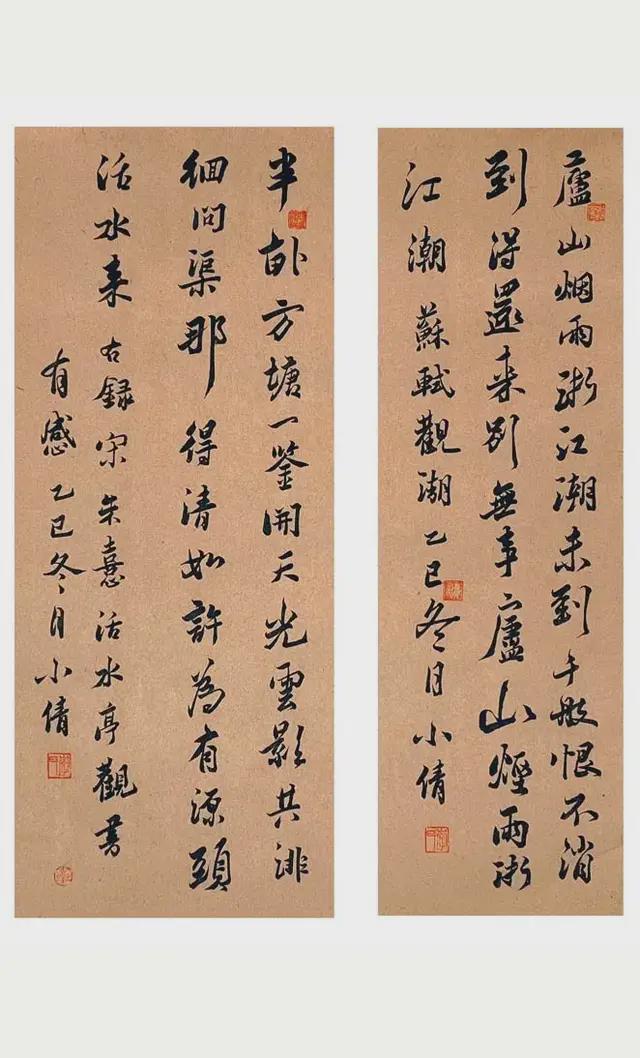 廬山烟雨浙江潮未到千般恨不消
到得還来别無事廬山煙雨浙
江潮 蘇軾觀湖 乙巳冬月小倩
半畝方塘一鉴開天光雲影共徘
徊問渠那得清如許為有源頭
活水来 右録宋朱熹活水亭觀書
有感 乙巳冬月小倩